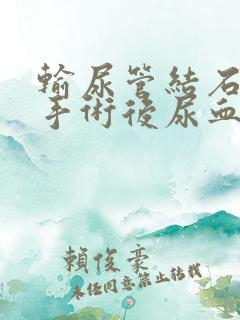 輸尿管結石
手術後尿血
賴俊豪
未經同意禁止轉載